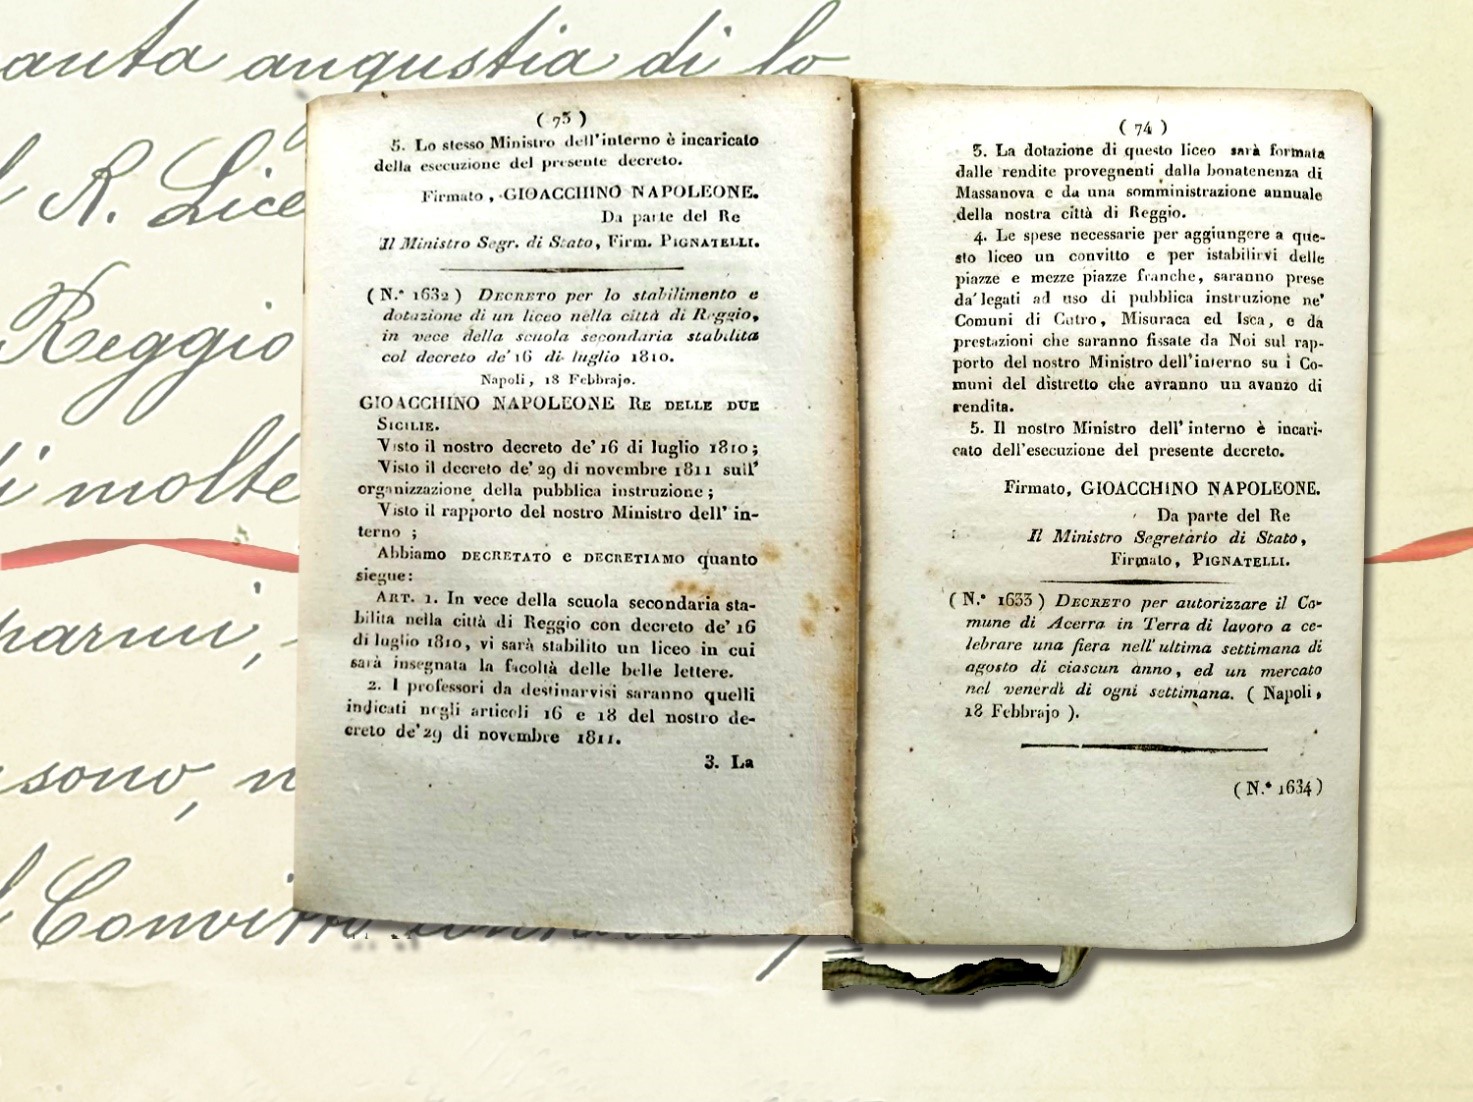 anta angustia di lo
R. Lice
Reggio
di molte
parmi,
sono, n
Convitto
( 73 )
5. Lo stesso Ministro dell'interno è incaricato
della esecuzione del presente decreto.
Firmato, GIOACCHINO NAPOLEONE.
Da parte del Re
Il Ministro Segr. di Stato, Firm. PIGNATELLI.
( N.° 1632 ) DECRETO per lo stabilimento e
dotazione di un liceo nella città di Reggio,
in vece della scuola secondaria stabilita
col decreto de' 16 di luglio 1810.
Napoli, 18 Febbrajo.
GIOACCHINO NAPOLEONE RE DELLE DUE
SICILIE.
Visto il nostro decreto de' 16 di luglio 1810;
Visto il decreto de' 29 di novembre 1811 sull'
organizzazione della pubblica instruzione;
Visto il rapporto del nostro Ministro dell' in-
terno ;
Abbiamo DECRETATO e DECRETIAMO quanto
siegue:
ART. 1. In vece della scuola secondaria sta-
bilita nella città di Reggio con decreto de' 16
di luglio 1810, vi sarà stabilito un liceo in cui
sarà insegnata la facoltà delle belle lettere.
2. I professori da destinarvisi saranno quelli
indicati negli articoli 16 e 18 del nostro de-
creto de' 29 di novembre 1811.
3. La
( 74 )
3. La dotazione di questo liceo sarà formata
dalle rendite provegnenti dalla bonatenenza di
Massanova e da una somministrazione annuale
della nostra città di Reggio.
4. Le spese necessarie per aggiungere a que-
sto liceo un convitto e per istabilirvi delle
piazze e mezze piazze franche, saranno prese
da' legati ad uso di pubblica instruzione ne'
Comuni di Cutro, Misuraca ed Isca, e da
prestazioni che saranno fissate da Noi sul rap-
porto del nostro Ministro dell'interno su i Co-
muni del distretto che avranno un avanzo di
rendita.
5. Il nostro Ministro dell' interno è incari-
cato dell'esecuzione del presente decreto.
Firmato, GIOACCHINO NAPOLEONE.
Da parte del Re
Il Ministro Segretario di Stato,
Firmato, PIGNATELLI.
( N.° 1633 ) DECRETO per autorizzare il Co-
mune di Acerra in Terra di lavoro a ce-
lebrare una fiera nell'ultima settimana di
agosto di ciascun anno, ed un mercato
nel venerdì di ogni settimana. ( Napoli,
18 Febbrajo ).
( N.° 1634 )